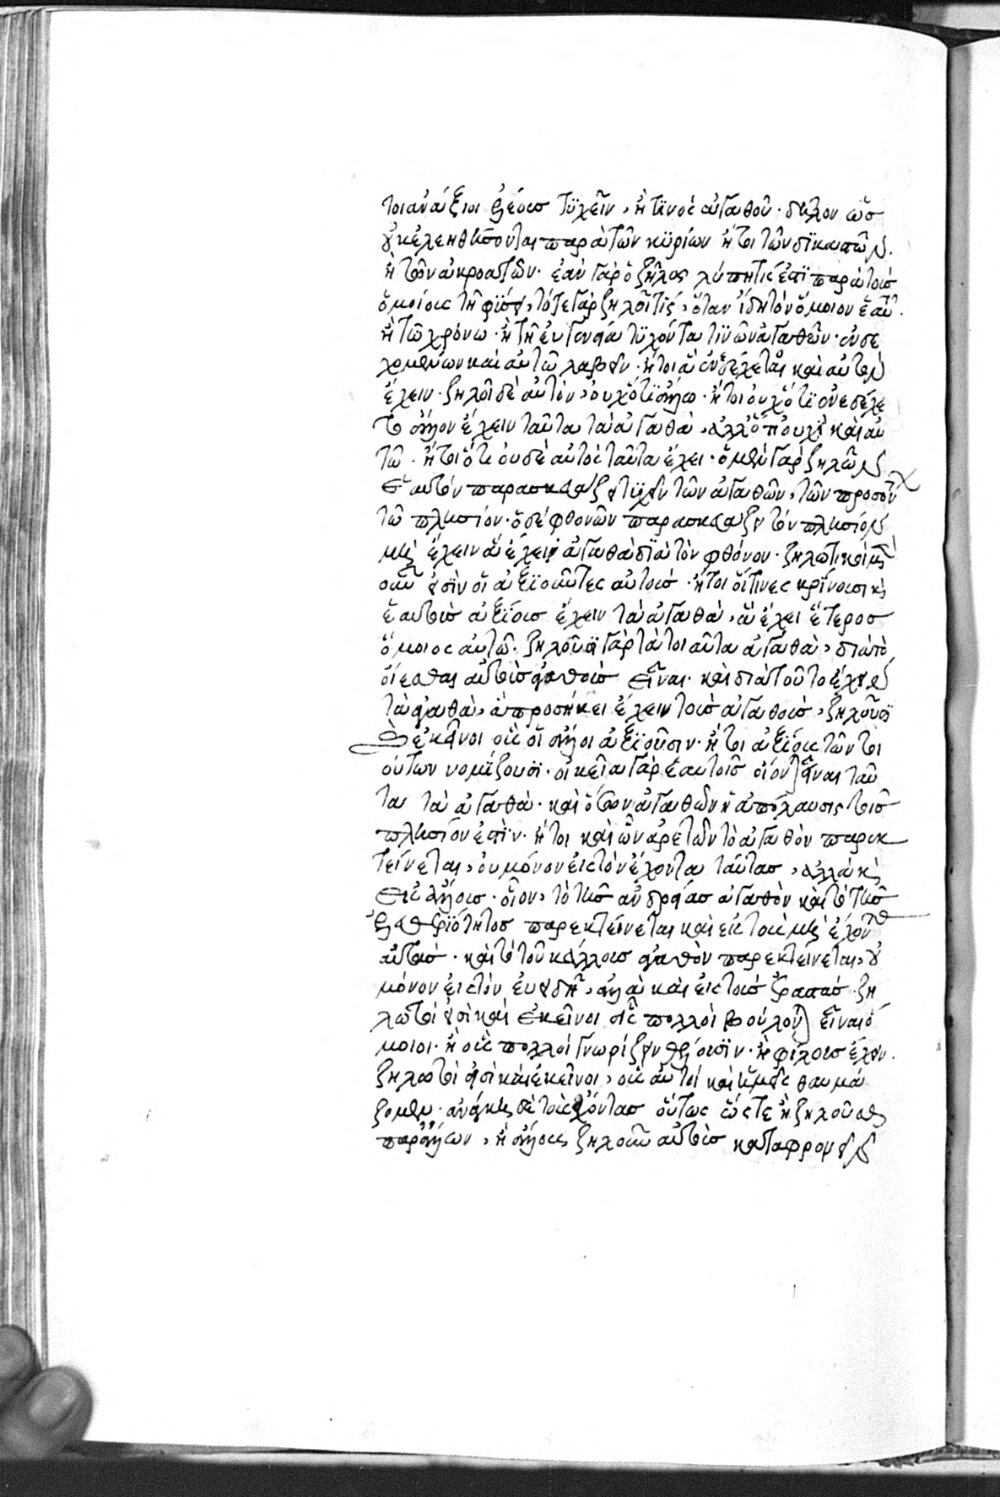 τοι ἀνάξιοι ἐλέους τυχεῖν, ἤ τινος ἀγαθοῦ· δῆλον ὡς
οὐκ ἐλεηθήσονται παρὰ τῶν κυρίων ἤτοι τῶν δικαστῶν
ἢ τῶν ἀκροατῶν· ἐὰν γὰρ ὁ ζῆλος λύπη τίς ἐστι παρὰ τοῖς
ὁμοίοις τῇ φύσει, τότε γὰρ ζηλοῖ τίς, ὅταν ἴδῃ τὸν ὅμοιον ἑαυτ
ἢ τῷ χρόνῳ· ἢ τῇ εὐγενείᾳ τυχόντα τινῶν ἀγαθῶν· ἐνδε
χομένων καὶ αὐτῷ λαβεῖν· ἤτοι ἃ ἐνδέχεται καὶ αὐτὸν
ἔχειν· ζηλοῖ δὲ αὐτὸν, οὐχ ὅτι ἄλλῳ· ἤτοι οὐχ ὅτι ἐνεδέχε
το ἄλλον ἔχειν ταῦτα τὰ ἀγαθὰ, ἀλλ' ὅτι οὐχὶ καὶ αὐ
τῷ· ἤτοι ὅτι οὐδὲ αὐτὸς ταῦτα ἔχει· ὁ μὲν γὰρ ζηλῶν
ἑαυτὸν παρασκευάζει τυχεῖν τῶν ἀγαθῶν, τῶν προσόντ
τῷ πλησίον· ὁ δὲ φθονῶν παρασκευάζει τὸν πλησίον
μὴ ἔχειν ἃ ἔχει ἀγαθὰ διὰ τὸν φθόνον· ζηλωτικοὶ μὲν
οὖν εἰσὶν οἱ ἀξιοῦντες αὐτοὺς· ἤτοι οἵτινες κρίνουσι καὶ
ἑαυτοὺς ἀξίους ἔχειν τὰ ἀγαθὰ, ἃ ἔχει ἕτερος
ὅμοιος αὐτῷ· ζηλοῦσι γὰρ τὰ τοιαῦτα ἀγαθὰ, διὰ τὸ
οἴεσθαι αὐτοὺς ἀγαθοὺς εἶναι· καὶ διὰ τοῦτο ἔχειν
τὰ ἀγαθὰ, ἃ προσήκει ἔχειν τοῖς ἀγαθοῖς, ζηλοῦσι
δὲ ἐκεῖνοι οὓς οἱ ἄλλοι ἀξιοῦσιν· ἤτοι ἀξίους τῶν τοι
ούτων νομίζουσι· οἰκεῖα γὰρ ἑαυτοῖς οἴονται εἶναι ταῦ
τα τὰ ἀγαθὰ· καὶ ὅσων ἀγαθῶν ἡ ἀπόλαυσις τοῖς
πλησίον ἐστὶν· ἤτοι καὶ ὧν ἀρετῶν τὸ ἀγαθὸν παρεκ
τείνεται, οὐ μόνον εἰς τὸν ἔχοντα ταύτας, ἀλλὰ καὶ
εἰς ἄλλους· οἷον, τὸ τῆς ἀνδρείας ἀγαθὸν καὶ τὸ τῆς
ἐλευθεριότητος παρεκτείνεται καὶ εἰς τοὺς μὴ ἔχοντας
αὐτὰς· καὶ τὸ τοῦ κάλλους ἀγαθὸν παρεκτείνεται, οὐ
μόνον εἰς τὸν εὐειδῆ, ἀλλὰ καὶ εἰς τοὺς ἐραστάς· ζη
λωτοί εἰσι καὶ ἐκεῖνοι οἷς πολλοὶ βούλονται εἶναι ὅ
μοιοι· ἢ οὓς πολλοὶ γνωρίζειν θέλουσιν· ἢ φίλους ἔχειν.
ζηλωτοί εἰσι καὶ ἐκεῖνοι, οὓς αὐτοί καὶ ἡμεῖς θαυμά
ζομεν· ἀνάγκη δὲ τοὺς ἔχοντας οὕτως ὥστε ἢ ζηλοῦσθαι
παρ' ἄλλων, ἢ ἄλλους ζηλοῦν αὐτοὺς καταφρονεῖν